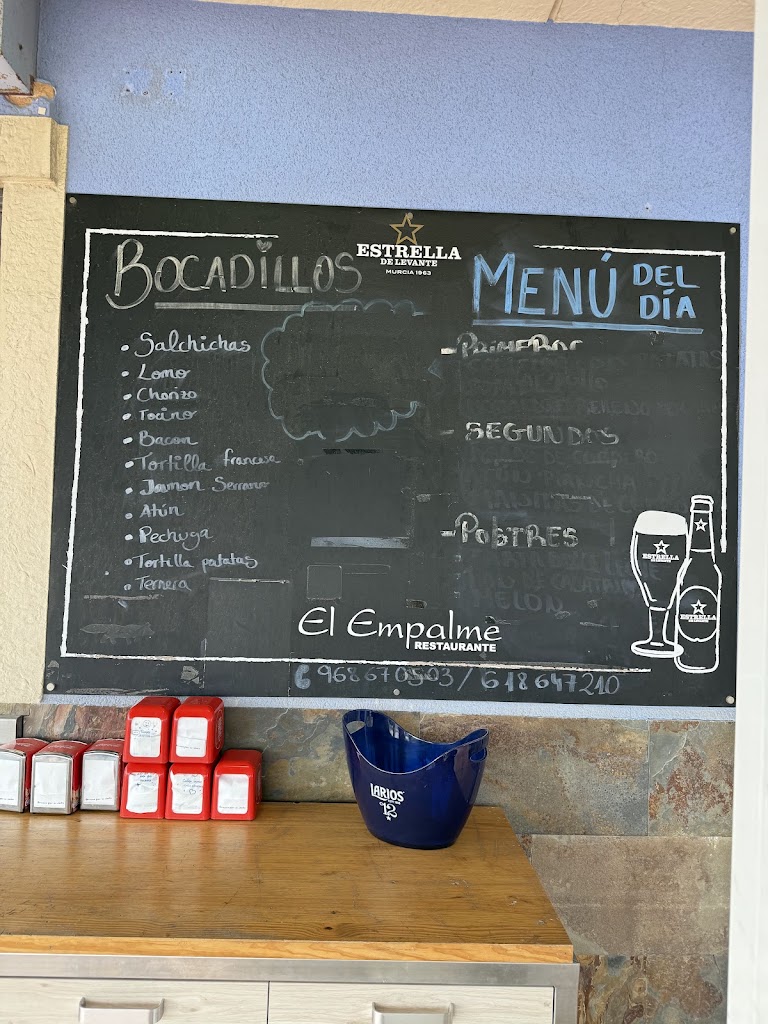 BOCADILLOS
Salchichas
Lomo
Chorizo
Tocino
Bacon
Tortilla francesa
Jamon Serrano
Atún
Pechuga
Tortilla patatas
Ternera
ESTRELLA
DE LEVANTE
MURCIA 1963
MENÚ DEL DÍA
- PRIMEROS
- SEGUNDOS
- POSTRES
MELON
ESTRELLA
ESTRELLA
El Empalme
RESTAURANTE
968670503 / 618647210
LARIOS
12